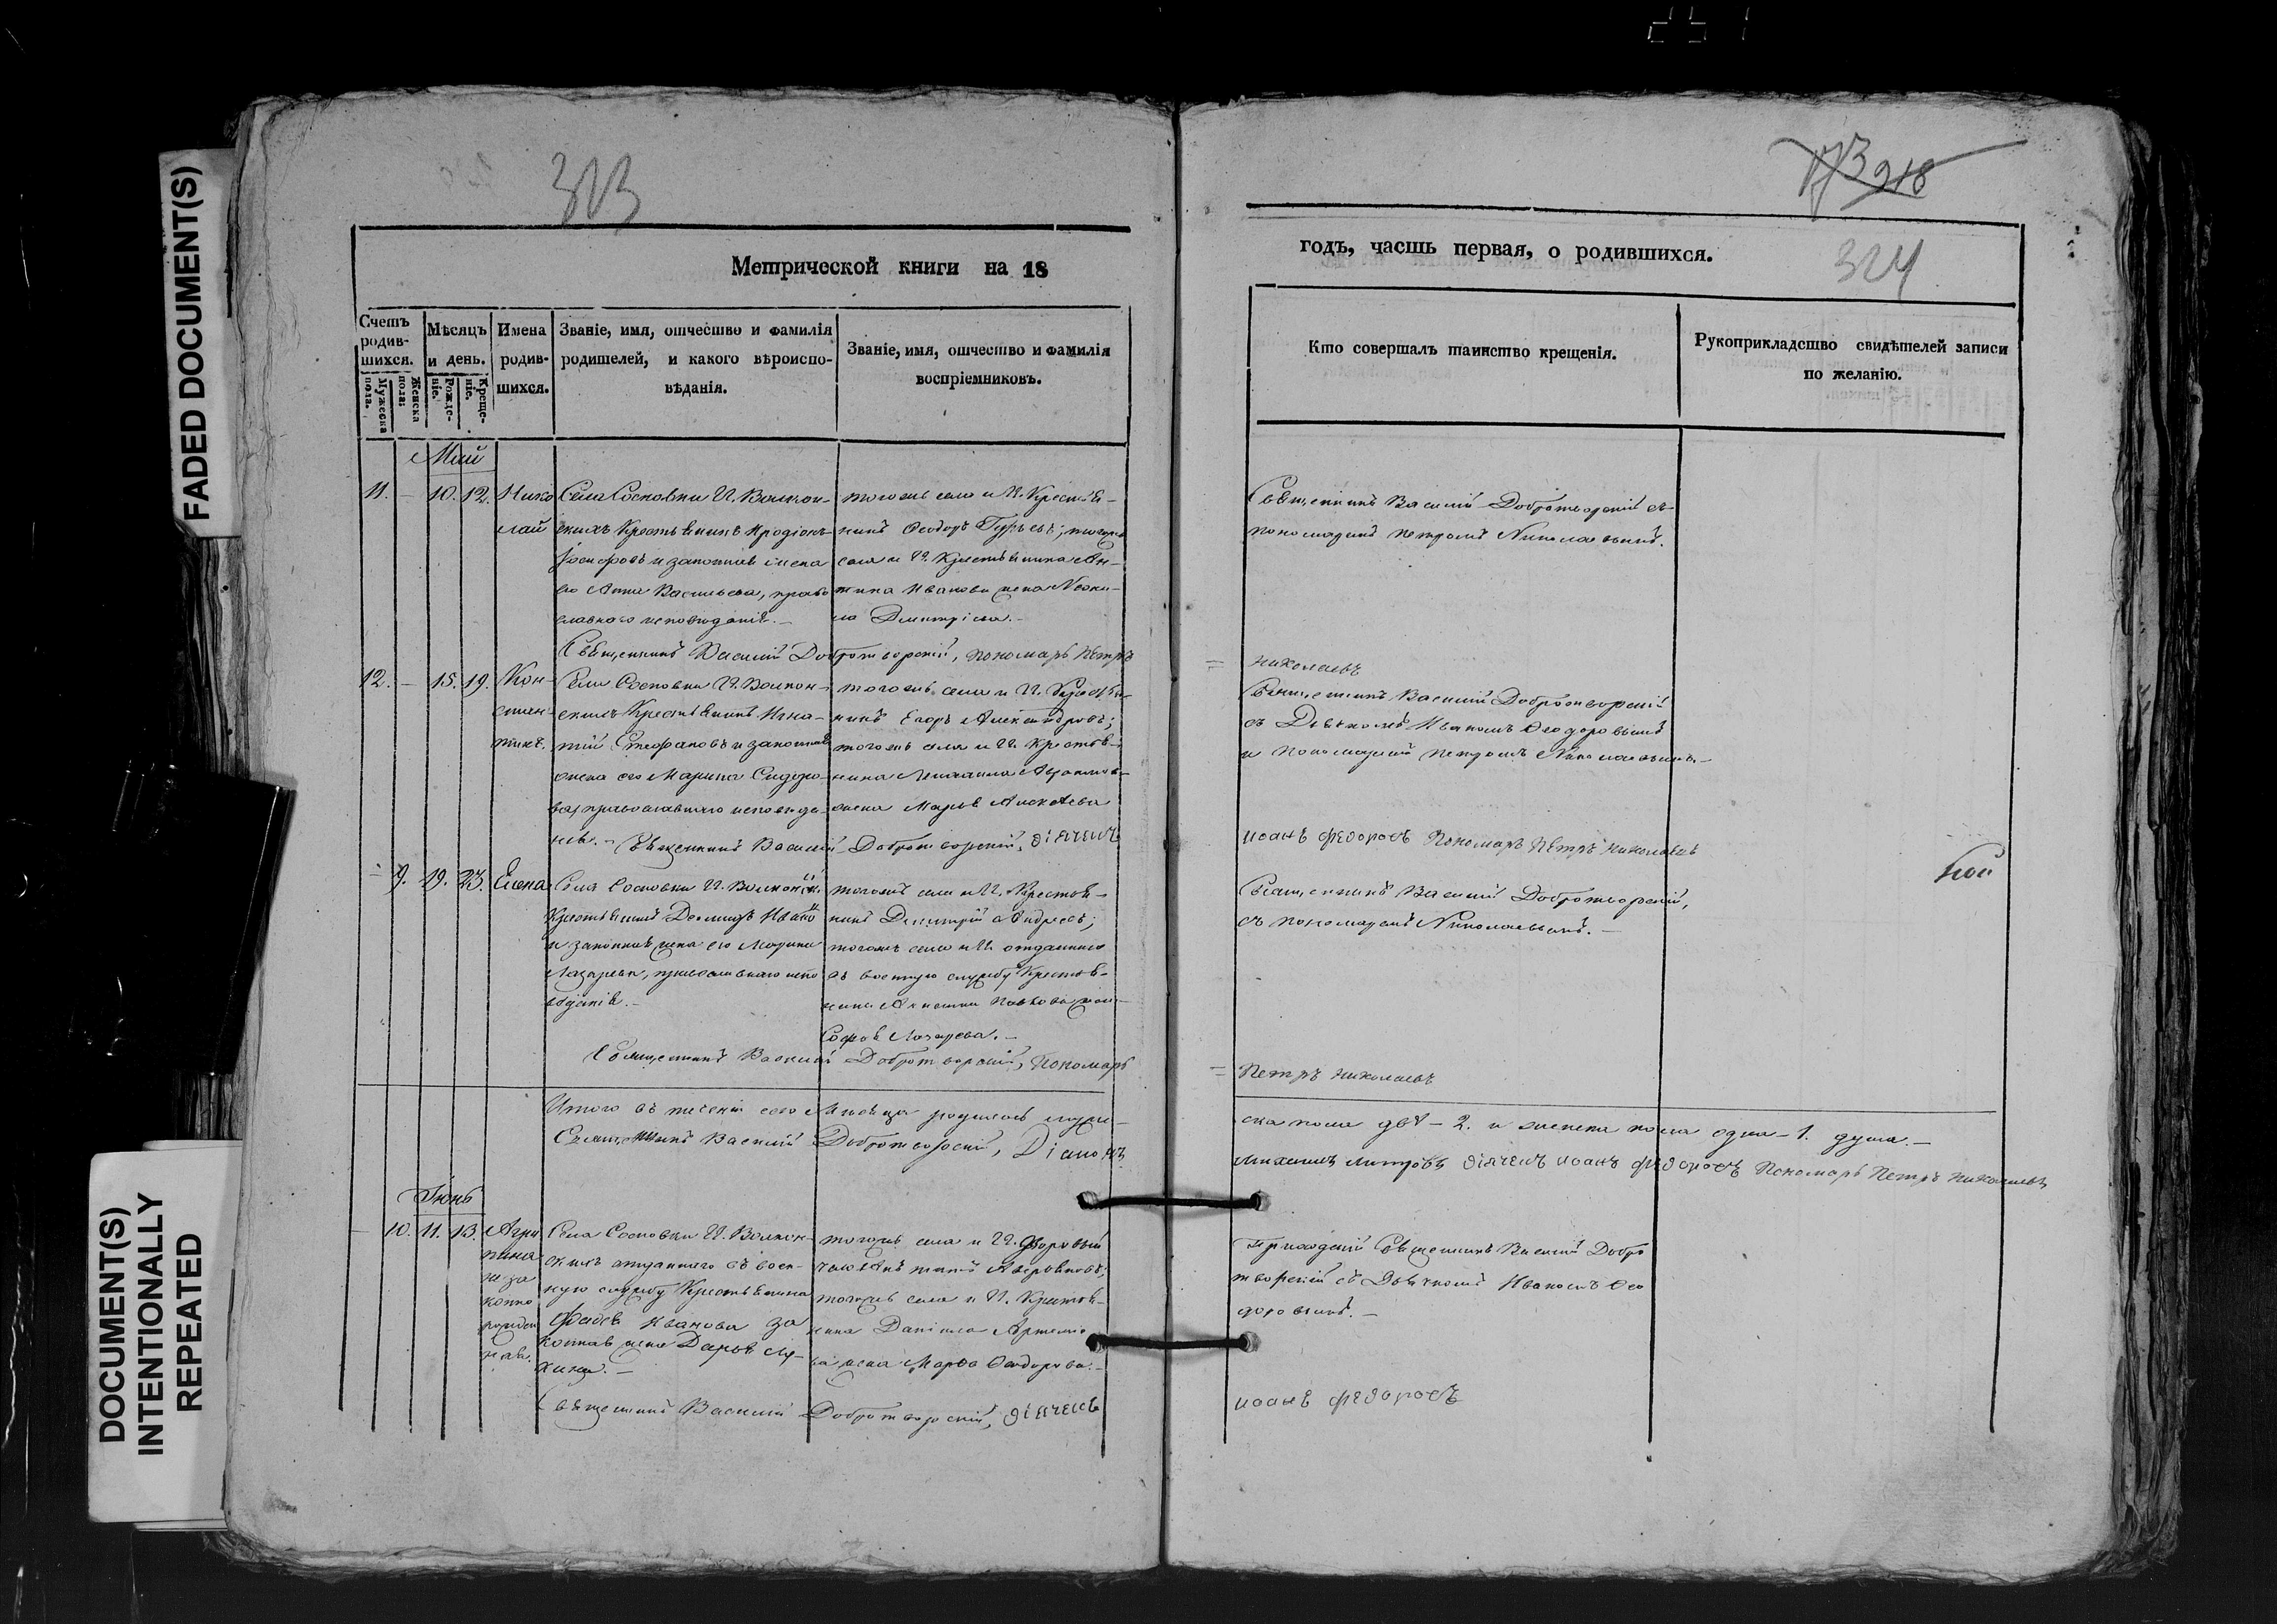 FADED DOCUMENT(S)
DOCUMENT(S)
INTENTIONALLY
REPEATED
323
Метрической книги на 18
Счетъ родив-шихся.
Мужеска пола.
Женска пола:
Мѣсяцъ и день.
Рожде-ніе.
Креще-ніе.
Имена родив-шихся.
Званіе, имя, отчество и фамилія
родителей, и какого вѣроиспо-
вѣданія.
Званіе, имя, отчество и фамилія
воспріемниковъ.
Май
11. – 10. 12. Нико
лай
Села Сосновки И. Волкон-
скихъ Крестьянинъ Иродіонъ
и законная жена
его Анна Васильева, право
славнаго исповѣданія. –
тогожъ села и И. Крестья-
нинъ Ѳеодоръ Гурьевъ; тогожъ
села и И. Крестьянина Ан-
Иванова жена
Димитріева. –
Священникъ Василій Добротворскій, пономарь Петръ
12. – 15. 19. Кон-
стан-
тинъ.
Села Сосновки И. Волкон-
скихъ Крестьянинъ Игна-
тій Стефановъ и законная
жена его Марина Сидоро-
ва, православнаго исповѣда-
нія. –
тогожъ села и И. Крестья-
нинъ Егоръ Александровъ;
тогожъ села и И. Крестья-
нина Михаила
жена Марья Алексѣева
Священникъ Василій Добротворскій, діячекъ
– 9. 19. 23. Елена
Села Сосновки И. Волконск.
Крестьянинъ Ивано
и законная жена его Марина
Лазарева, православнаго испо
вѣданія. –
тогожъ села и И. Крестья-
нинъ Димитрій Андреевъ;
тогожъ села и И. отданнаго
въ военную службу Крестья-
нина жена
Софья Лазарева. –
Священникъ Василій Добротворскій, Пономарь
Итого въ теченіи сего Мѣсяца родилось муже-
Священникъ Василій Добротворскій, Діаконъ
Іюнь
– 10. 11. 13. Агри
пина
неза
конно
рожден
ная.
Села Сосновки И. Волкон-
скихъ отданнаго въ воен-
ную службу Крестьянина
Фадѣя Иванова за
конная жена Дарья
тогожъ села и И. дворовый
человѣкъ
тогожъ села и И. Крестья-
нина Даніила Артемье
ва жена Марѳа Ѳеодорова. –
Священникъ Василій Добротворскій, діячекъ
324
годъ, часть первая, о родившихся.
Кто совершалъ таинство крещенія.
Рукоприкладство свидѣтелей записи
по желанію.
Священникъ Василій Добротворскій съ
пономаремъ Петромъ Николаевымъ.
Николаевъ
Священникъ Василій Добротворскій
съ Дьячкомъ Иваномъ Ѳеодоровымъ
и пономаремъ Петромъ Николаевымъ. –
иоанъ федоровъ Пономарь Петръ Николаевъ
Священникъ Василій Добротворскій,
съ пономаремъ Николаевымъ. –
Петръ Николаевъ
ска пола двѣ – 2. и женска пола одна – 1. душа. –
Михаилъ діячекъ иоанъ федоровъ Пономарь Петръ Николаевъ
Приходскій Священникъ Василій Добро
творскій съ Дьячкомъ Иваномъ Ѳео
доровымъ. –
иоанъ федоровъ